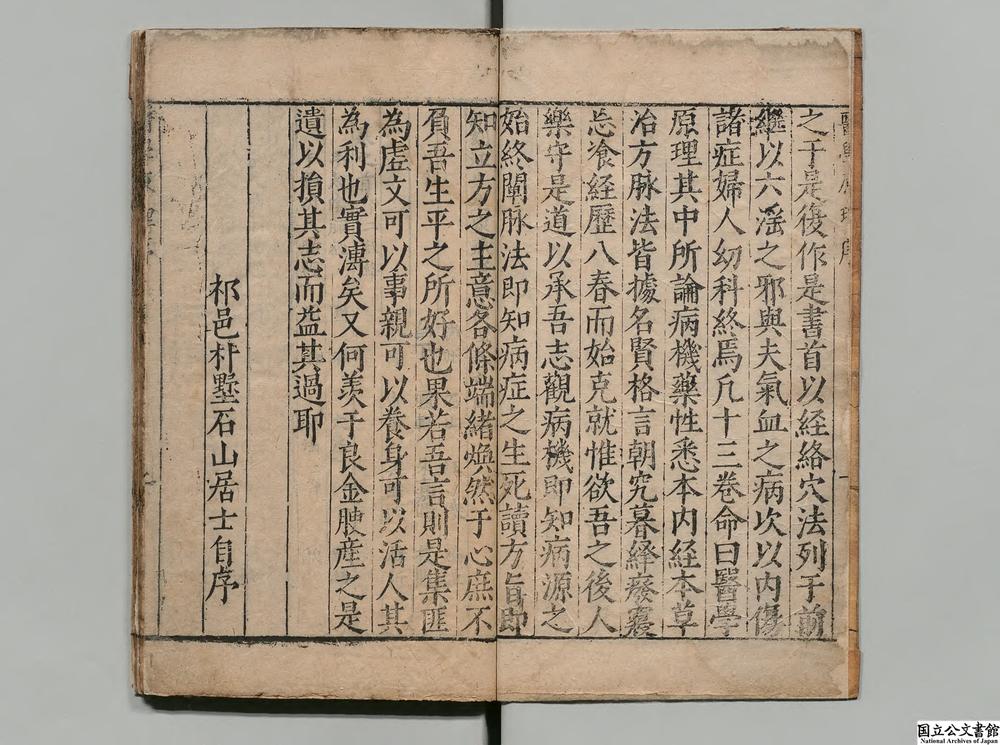 醫學原理序
之于是復作是書首以經絡穴法列于前
繼以六淫之邪與夫氣血之病次以内傷
諸症婦人幼科終焉凢十三卷命曰醫學
原理其中所論病機藥性悉本内經本草
治方脉法皆據名賢格言朝究暮繹廢寢
忘飱経歷八春而始克就惟欲吾之後人
樂守是道以承吾志觀病機即知病源之
始終閱脉法即知病症之生死讀方旨即
知立方之主意各條端緒煥然于心庶不
負吾生平之所好也果若吾言則是集匪
為虚文可以事親可以養身可以活人其
為利也實溥矣又何羨于良金腴産之是
遺以損其志而益其過耶
祁邑朴墅石山居士自序
国立公文書館
National Archives of Japan